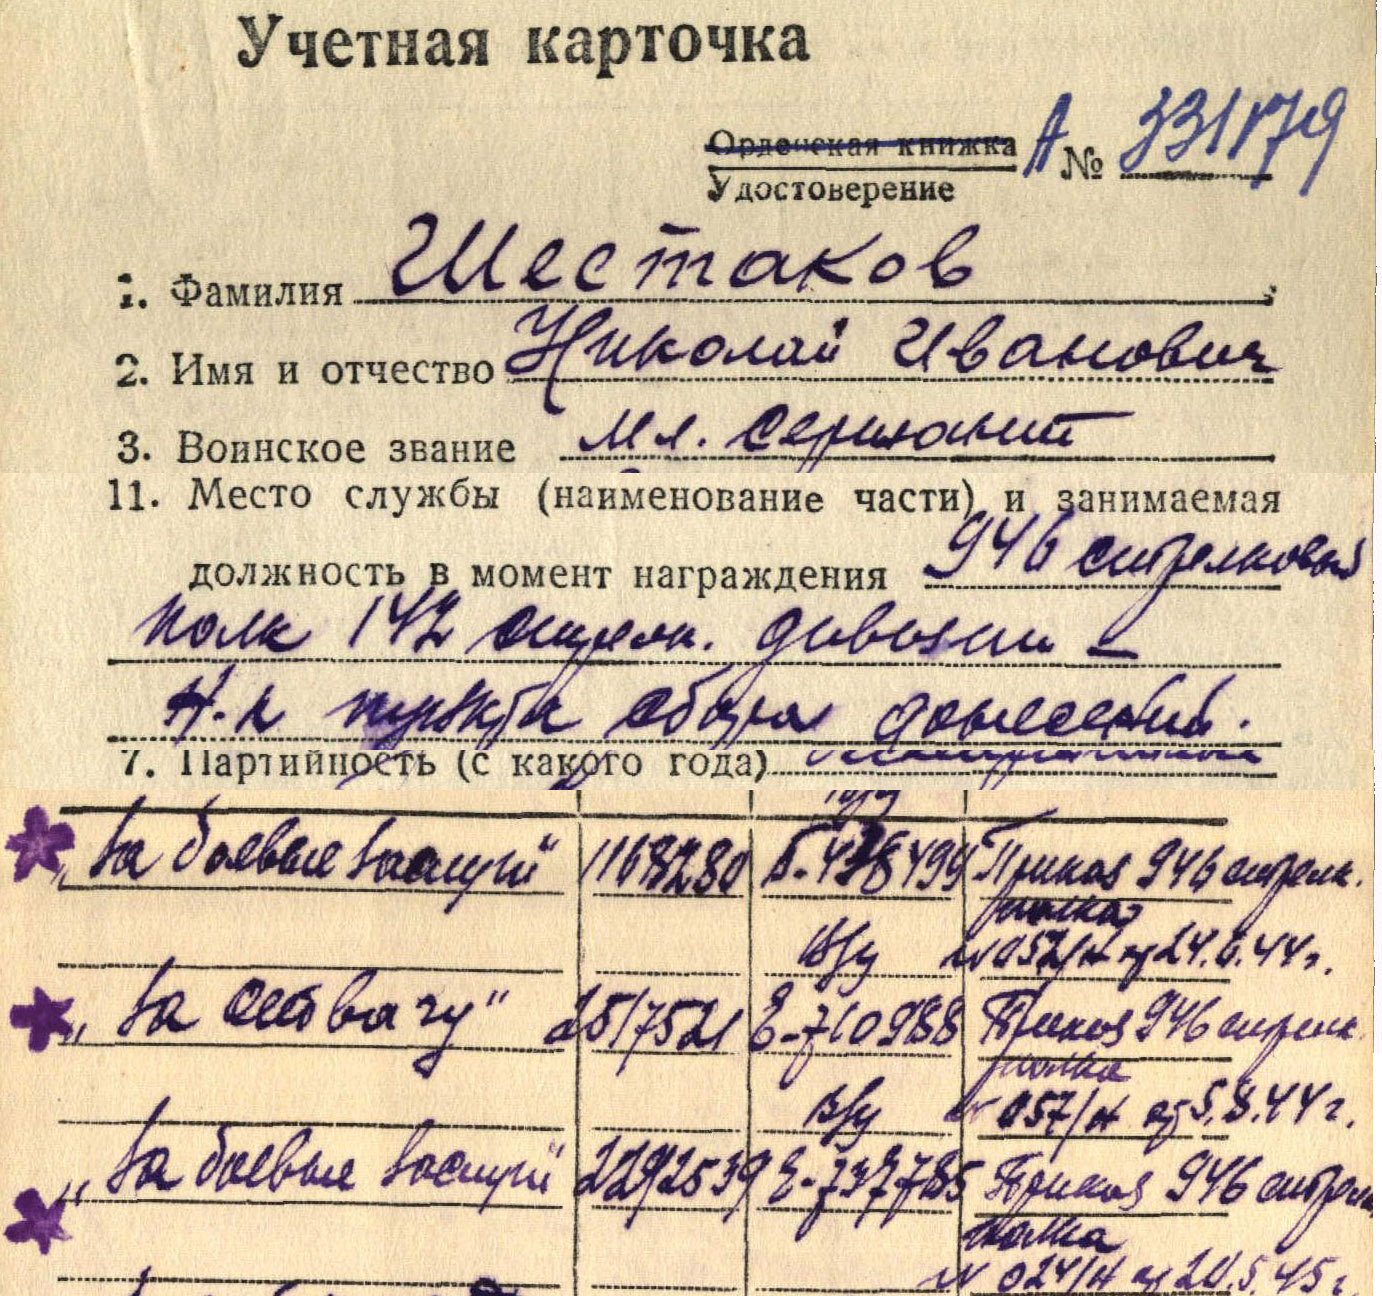 Учетная карточка
Орденская книжка А № 331179
Удостоверение
1. Фамилия Шестаков
2. Имя и отчество Николай Иванович
3. Воинское звание Мл. Сержант
11. Место службы (наименование части) и занимаемая
должность в момент награждения 946 стрелковый
полк 142 стрелк. дивизии –
Н-к пункта сбора донесений.
7. Партийность (с какого года)
„За боевые заслуги" 1168280 Б-438499 Приказ 946 стрелк.
полка
в/у № 052/н от 24.6.44 г.
„За отвагу" 2517521 Е-710988 Приказ 946 стрелк.
полка
в/у № 057/н от 5.8.44 г.
„За боевые заслуги" 2292539 Е-737785 Приказ 946 стрелк
полка
№ 024/н от 20.5.45 г.